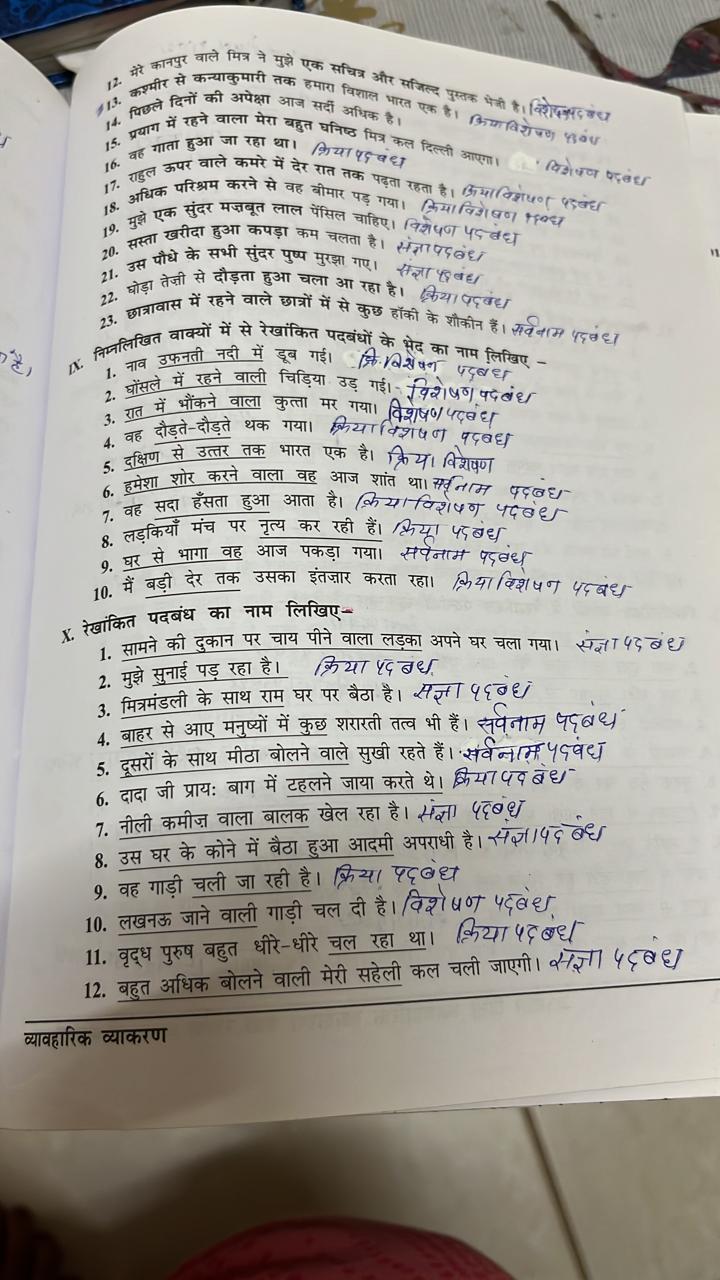 12. मेरे कानपुर वाले मित्र ने मुझे एक सचित्र और सजिल्द पुस्तक भेजी है। विशेषण पदबंध
13. कश्मीर से कन्याकुमारी तक हमारा विशाल भारत एक है।
14. पिछले दिनों की अपेक्षा आज सर्दी अधिक है। क्रियाविशेषण पदबंध
15. प्रयाग में रहने वाला मेरा बहुत घनिष्ठ मित्र कल दिल्ली आएगा। विशेषण पदबंध
16. वह गाता हुआ जा रहा था। क्रिया पदबंध
17. राहुल ऊपर वाले कमरे में देर रात तक पढ़ता रहता है। क्रियाविशेषण पदबंध
18. अधिक परिश्रम करने से वह बीमार पड़ गया। क्रियाविशेषण पदबंध
19. मुझे एक सुंदर मजबूत लाल पेंसिल चाहिए। विशेषण पदबंध
20. सस्ता खरीदा हुआ कपड़ा कम चलता है। संज्ञा पदबंध
21. उस पौधे के सभी सुंदर पुष्प मुरझा गए। संज्ञा पदबंध
22. घोड़ा तेज़ी से दौड़ता हुआ चला आ रहा है। क्रिया पदबंध
23. छात्रावास में रहने वाले छात्रों में से कुछ हॉकी के शौकीन हैं। सर्वनाम पदबंध
IX. निम्नलिखित वाक्यों में से रेखांकित पदबंधों के भेद का नाम लिखिए –
1. नाव उफनती नदी में डूब गई। क्रि.विशेषण पदबंध
2. घोंसले में रहने वाली चिड़िया उड़ गई। विशेषण पदबंध
3. रात में भौंकने वाला कुत्ता मर गया। विशेषण पदबंध
4. वह दौड़ते-दौड़ते थक गया। क्रिया विशेषण पदबंध
5. दक्षिण से उत्तर तक भारत एक है। क्रिया विशेषण
6. हमेशा शोर करने वाला वह आज शांत था। सर्वनाम पदबंध
7. वह सदा हँसता हुआ आता है। क्रिया विशेषण पदबंध
8. लड़कियाँ मंच पर नृत्य कर रही हैं। क्रिया पदबंध
9. घर से भागा वह आज पकड़ा गया। सर्वनाम पदबंध
10. मैं बड़ी देर तक उसका इंतज़ार करता रहा। क्रिया विशेषण पदबंध
X. रेखांकित पदबंध का नाम लिखिए–
1. सामने की दुकान पर चाय पीने वाला लड़का अपने घर चला गया। संज्ञा पदबंध
2. मुझे सुनाई पड़ रहा है। क्रिया पदबंध
3. मित्रमंडली के साथ राम घर पर बैठा है। संज्ञा पदबंध
4. बाहर से आए मनुष्यों में कुछ शरारती तत्व भी हैं। सर्वनाम पदबंध
5. दूसरों के साथ मीठा बोलने वाले सुखी रहते हैं। सर्वनाम पदबंध
6. दादा जी प्रायः बाग में टहलने जाया करते थे। क्रिया पदबंध
7. नीली कमीज़ वाला बालक खेल रहा है। संज्ञा पदबंध
8. उस घर के कोने में बैठा हुआ आदमी अपराधी है। संज्ञा पदबंध
9. वह गाड़ी चली जा रही है। क्रिया पदबंध
10. लखनऊ जाने वाली गाड़ी चल दी है। विशेषण पदबंध
11. वृद्ध पुरुष बहुत धीरे-धीरे चल रहा था। क्रिया पदबंध
12. बहुत अधिक बोलने वाली मेरी सहेली कल चली जाएगी। संज्ञा पदबंध
व्यावहारिक व्याकरण